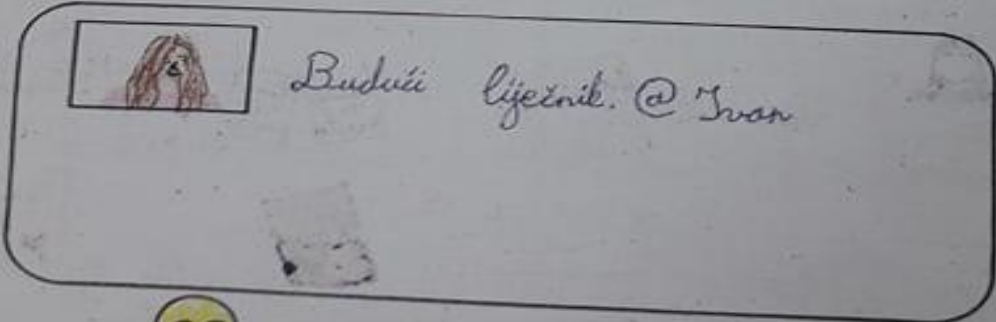 Budući liječnik. @ Ivan